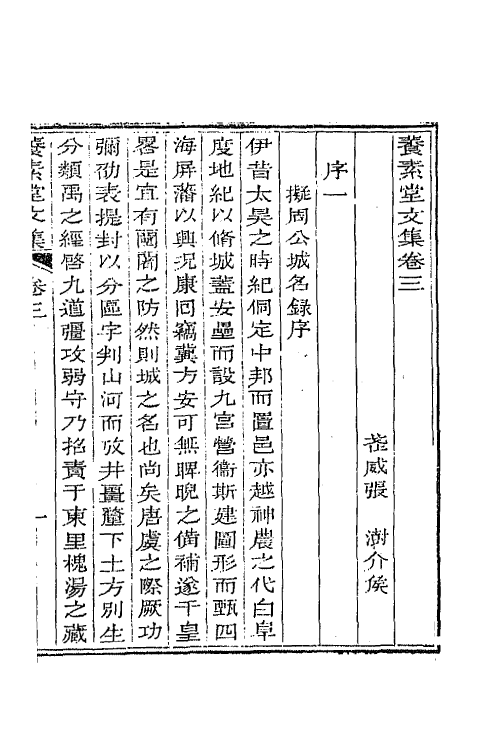 養素堂文集卷三
武威張 澍介侯
序一
擬周公城名錄序
伊昔太昊之時紀侗定中邦而置邑亦越神農之代白阜
度地紀以脩城蓋安壘而設九宮營衞斯建圖形而甄四
海屏藩以興況康回竊冀方安可無睥睨之備補遂干皇
畧是宜有闉闍之防然則城之名也尚矣唐虞之際厥功
彌劭表提封以分區宇判山河而攷井畺釐下土方別生
分類禹之經啓九道彊攻弱守乃招責于東里槐湯之藏
養素堂文集 卷三 一